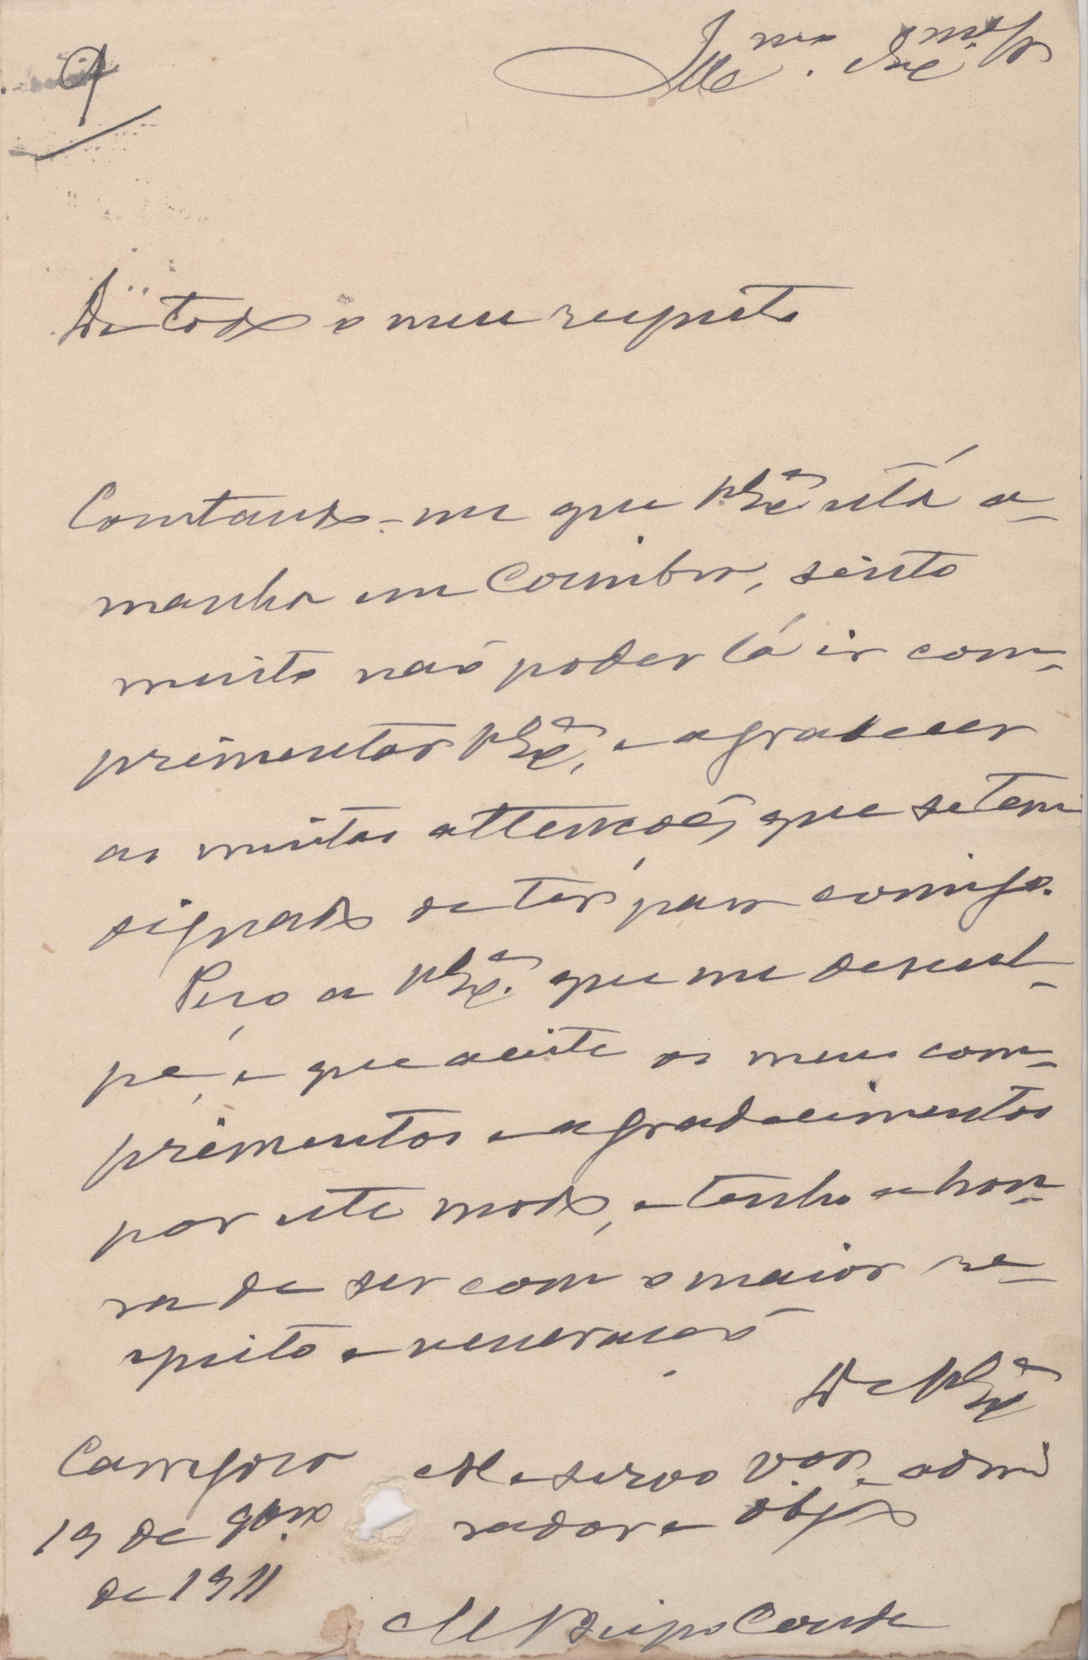 9
Illmo. Exmo. Sr.
De todo o meu respeito
Constando-me que V. Exa. está a-
manhã em Coimbra, sinto
muito não poder lá ir com-
primentar V. Exa, e agradecer
as muitas attenções, que se tem
dignado de ter para comigo.
Peço a V. Exa. que me descul-
pe, e que aceite os meus com-
primentos e agradecimentos
por este modo, e tenho a hon-
ra de ser com o maior re-
speito e veneração
De V. Exa
Carregosa
Me servo Vor. e admi
19 de 9bro
rador e obgo
de 1911
M Bispo Conde